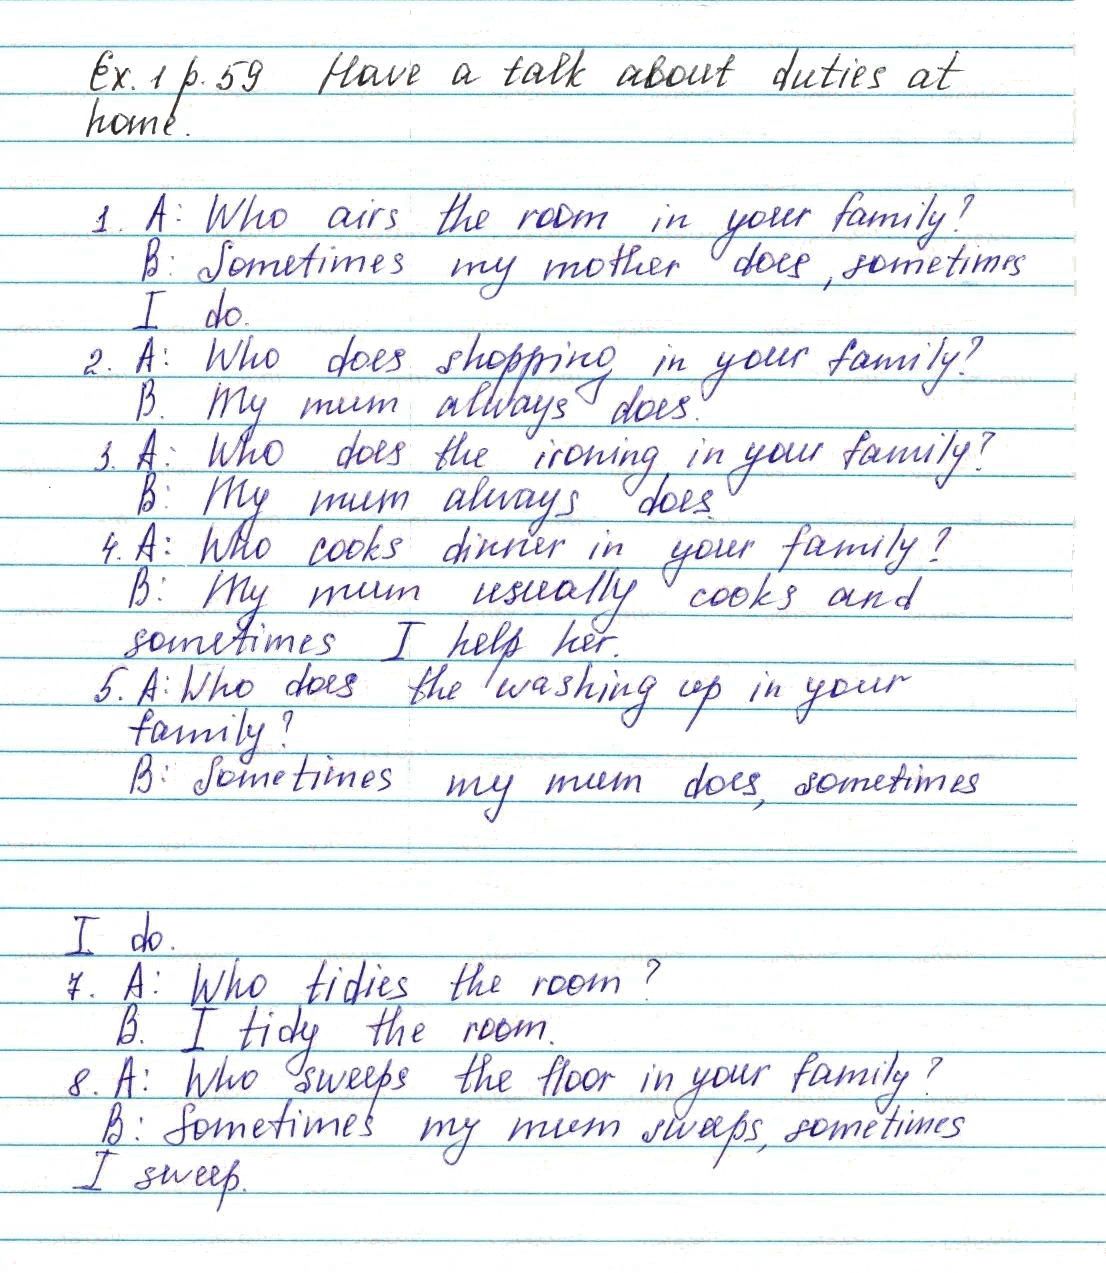 Ex. 1 p. 59 Have a talk about duties at
home.
1. A: Who airs the room in your family?
B: Sometimes my mother does, sometimes
I do.
2. A: Who does shopping in your family?
B. My mum always does.
3. A: Who does the ironing in your family?
B: My mum always does.
4. A: Who cooks dinner in your family?
B: My mum usually cooks and
sometimes I help her.
5. A: Who does the washing up in your
family?
B: Sometimes my mum does, sometimes
I do.
7. A: Who tidies the room?
B. I tidy the room.
8. A: Who sweeps the floor in your family?
B: Sometimes my mum sweeps, sometimes
I sweep.